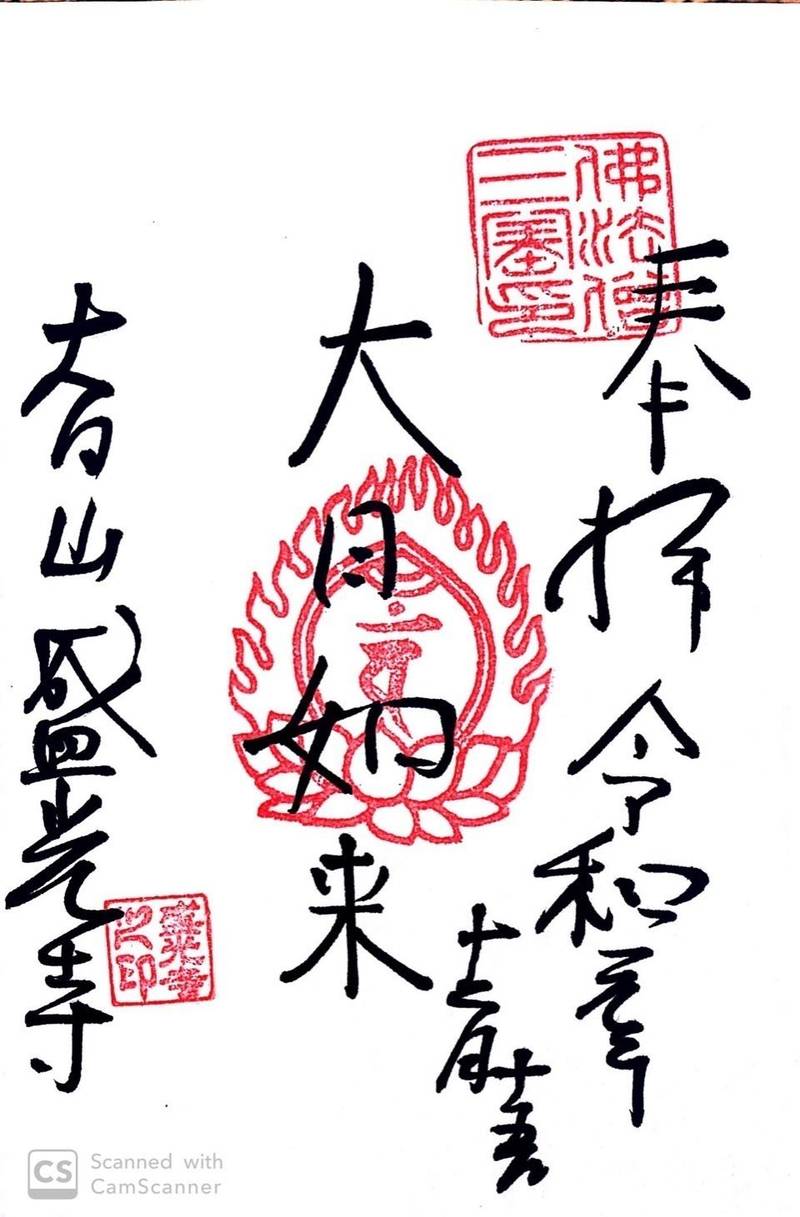 佛法僧
三寳印
奉拝 令和元年
十二月十五日
大日如来
大日山 盛光寺
之印
CS Scanned with
CamScanner